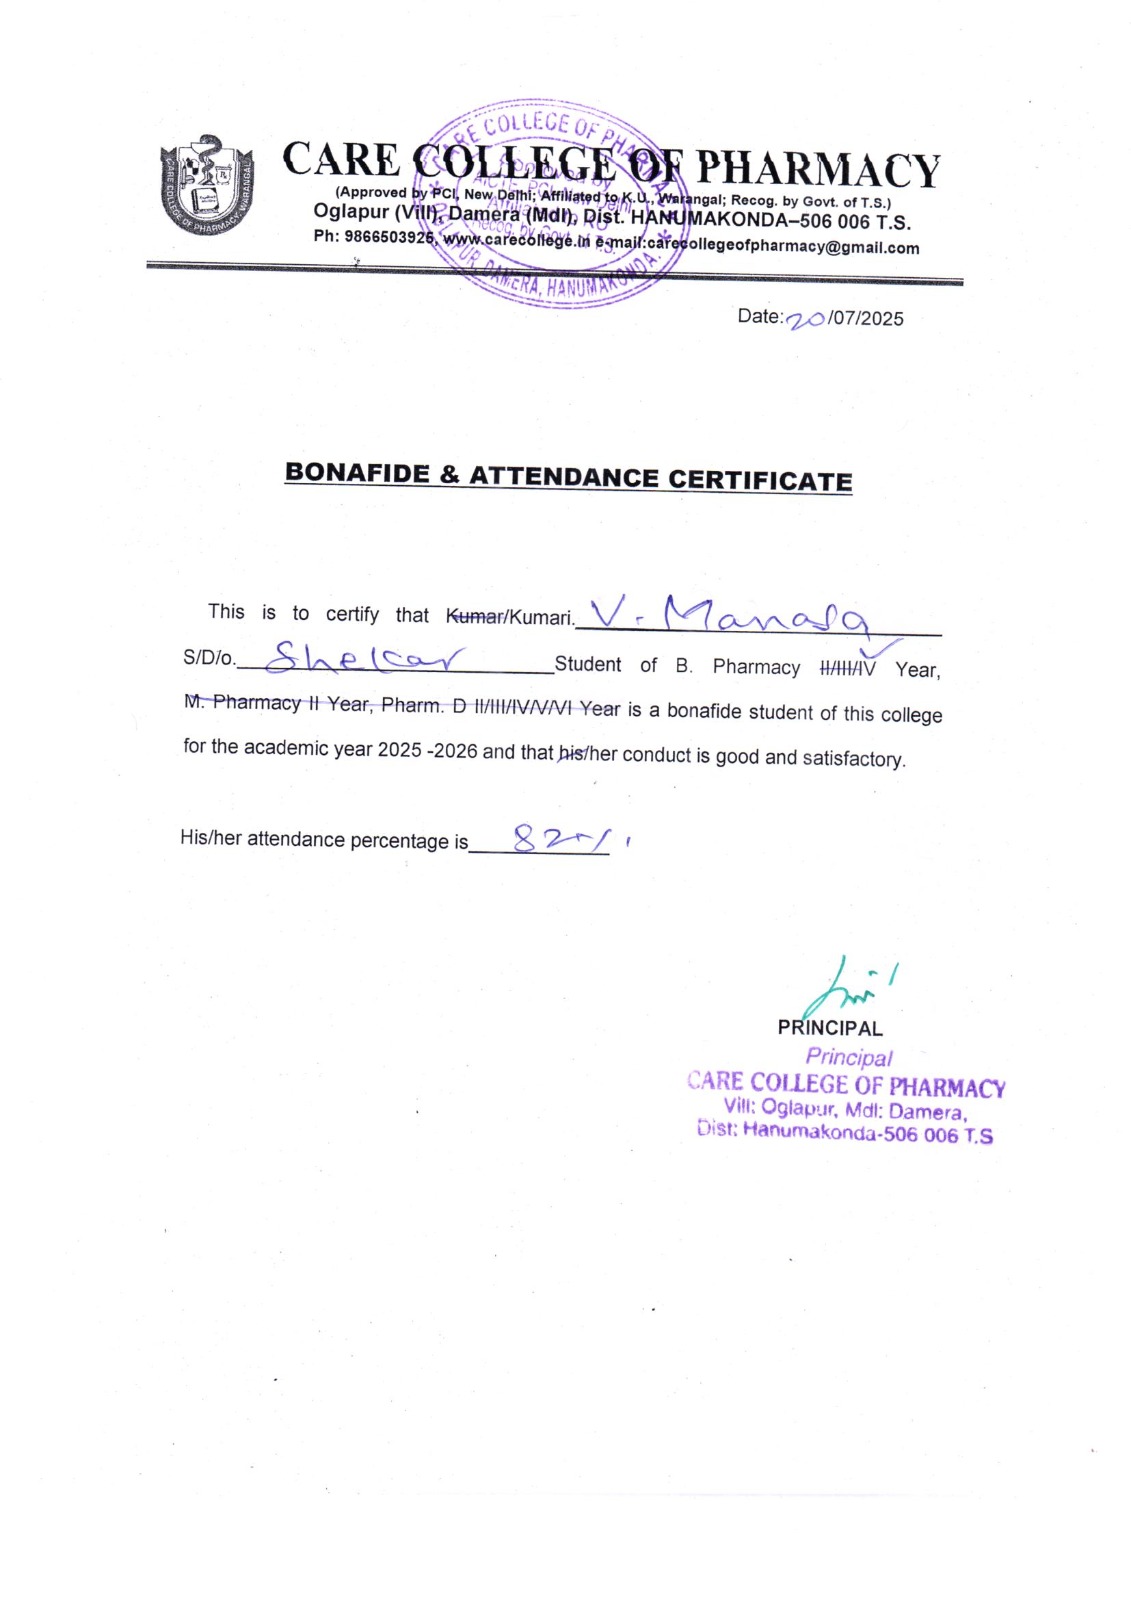 CARE COLLEGE OF PHARMACY
(Approved by PCI, New Delhi; Affiliated to K.U., Warangal; Recog. by Govt. of T.S.)
Oglapur (Vill), Damera (Mdl), Dist. HANUMAKONDA–506 006 T.S.
Ph: 9866503925, www.carecollege.in e-mail:carecollegeofpharmacy@gmail.com
CARE COLLEGE OF PHARMACY, WARANGAL
CARE COLLEGE OF PHARMACY
Approved by
AICTE, PCI, New Delhi
Affiliated to KU
Recog. by Govt. of T.S.
OGLAPUR, DAMERA, HANUMAKONDA.
Date:20/07/2025
BONAFIDE & ATTENDANCE CERTIFICATE
This is to certify that Kumar/Kumari. V. Manasa
S/D/o. Shekar Student of B. Pharmacy II/III/IV Year,
M. Pharmacy II Year, Pharm. D II/III/IV/V/VI Year is a bonafide student of this college
for the academic year 2025 -2026 and that his/her conduct is good and satisfactory.
His/her attendance percentage is 82%
PRINCIPAL
Principal
CARE COLLEGE OF PHARMACY
Vill: Oglapur, Mdl: Damera,
Dist: Hanumakonda-506 006 T.S